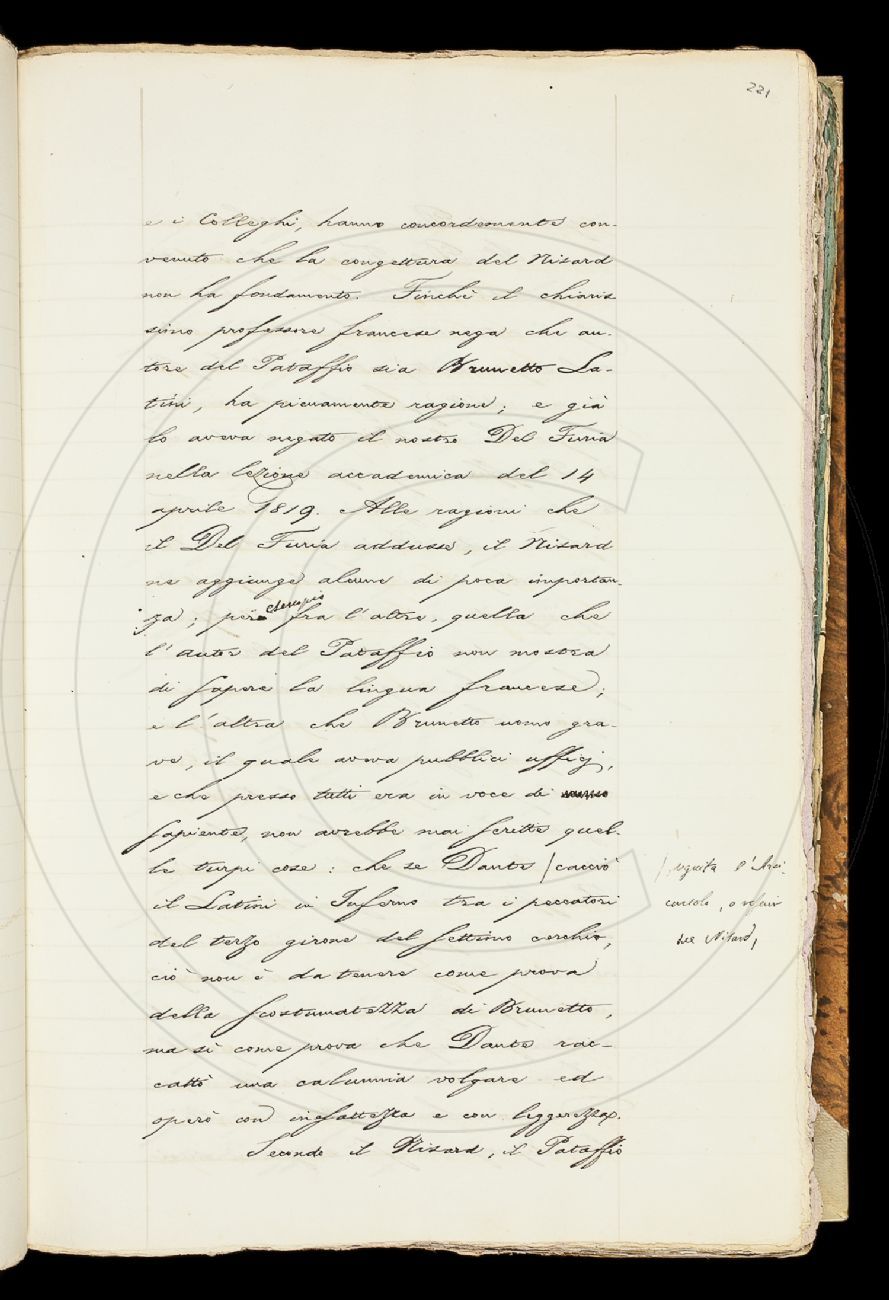 221
e i Colleghi, hanno concordemente con-
venuto che la congettura del Nisard
non ha fondamento. Finchè il chiaris
simo professore francese nega che au-
tore del Pataffio sia Brunetto La-
tini, ha pienamente ragione; e già
lo aveva negato il nostro Del Furia
nella lezione accademica del 14
aprile 1819. Alle ragioni che
il Del Furia addusse, il Nisard
ne aggiunge alcune di poca importan-
za; per esempio fra l'altre, quella che
l'autor del Pataffio non mostra
di sapere la lingua francese;
e l'altra che Brunetto uomo gra-
ve, il quale aveva pubblici ufficj,
e che presso tutti era in voce di
sapiente, non avrebbe mai scritte quel-
le turpi cose: che se Dante / cacciò
il Latini in Inferno tra i peccatori
del terzo girone del settimo cerchio,
ciò non è da tenere come prova
della scostumatezza di Brunetto,
ma sì come prova che Dante rac-
cattò una calunnia volgare ed
operò con inesattezza e con leggerezza.
Secondo il Nisard, il Pataffio
/, seguita l'Arci-
consolo, a
del Nisard,